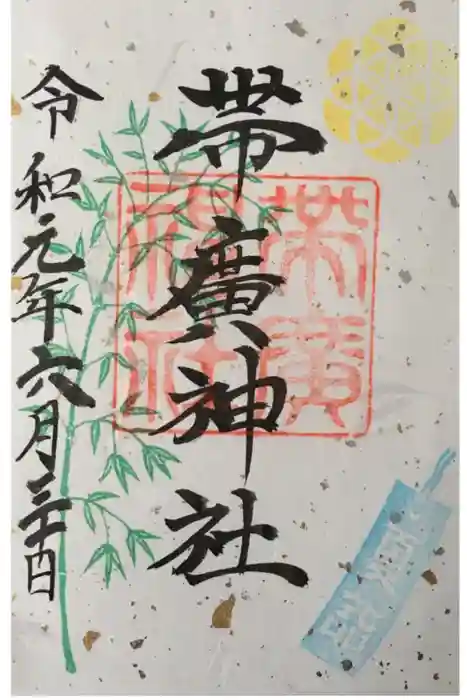 帯廣神社
令和元年六月三十日
帯廣
神社